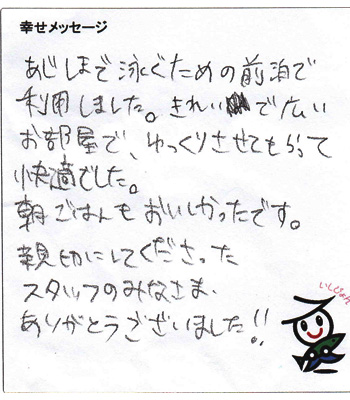 幸せメッセージ
あじしまで泳ぐための前泊で
利用しました。きれいで広い
お部屋で、ゆっくりさせてもらって
快適でした。
朝ごはんもおいしかったです。
親切にしてくださった
スタッフのみなさま、
ありがとうございました!!